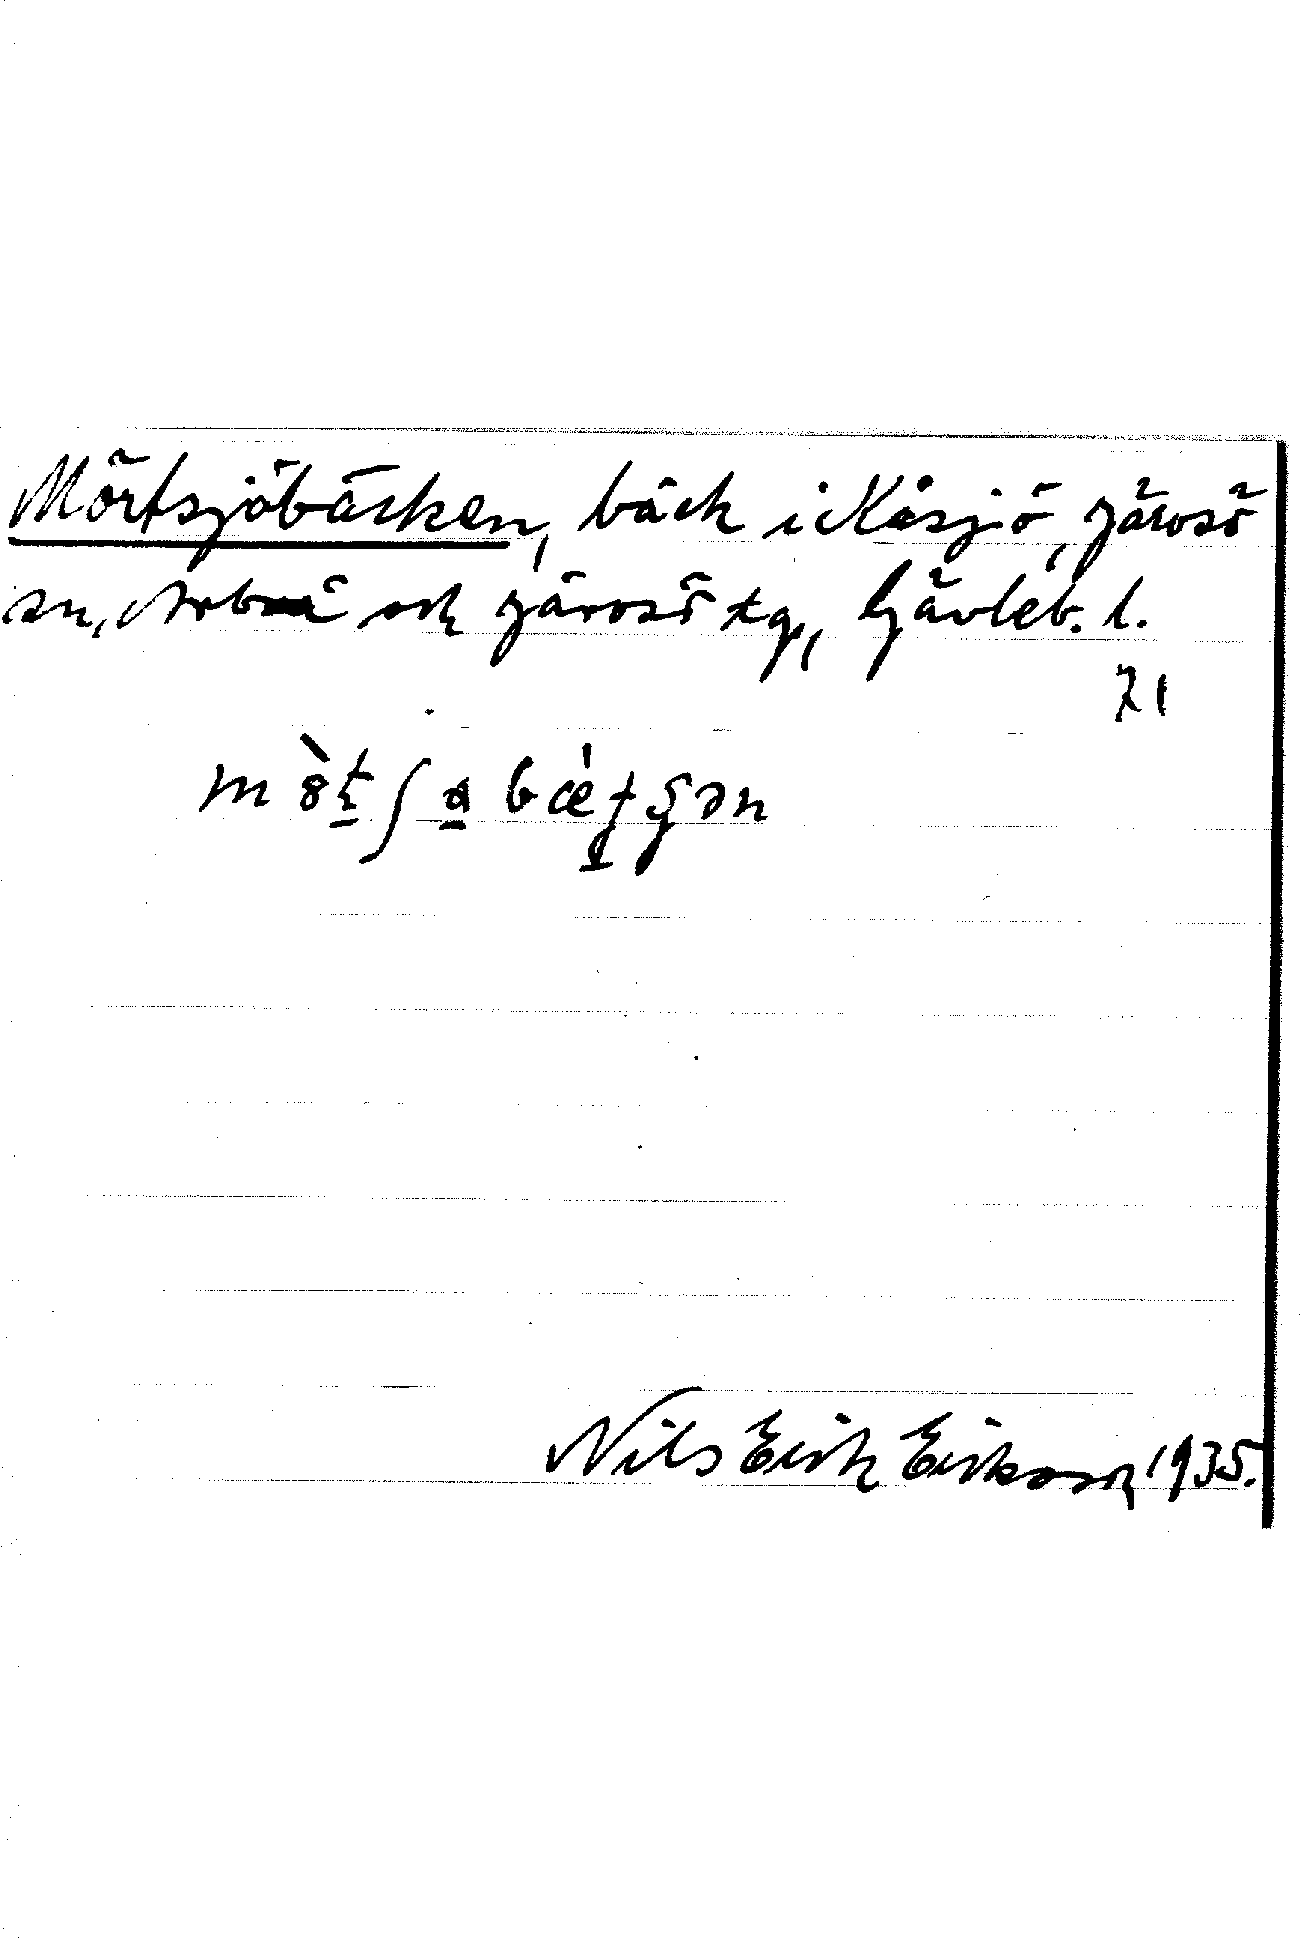 Mörtsjöbäcken, bäck i Kåsjö, Järvsö
sn, Arbrå och Järvsö tg, Gävleb. l.
71
Nils Erik Erikson 1935.